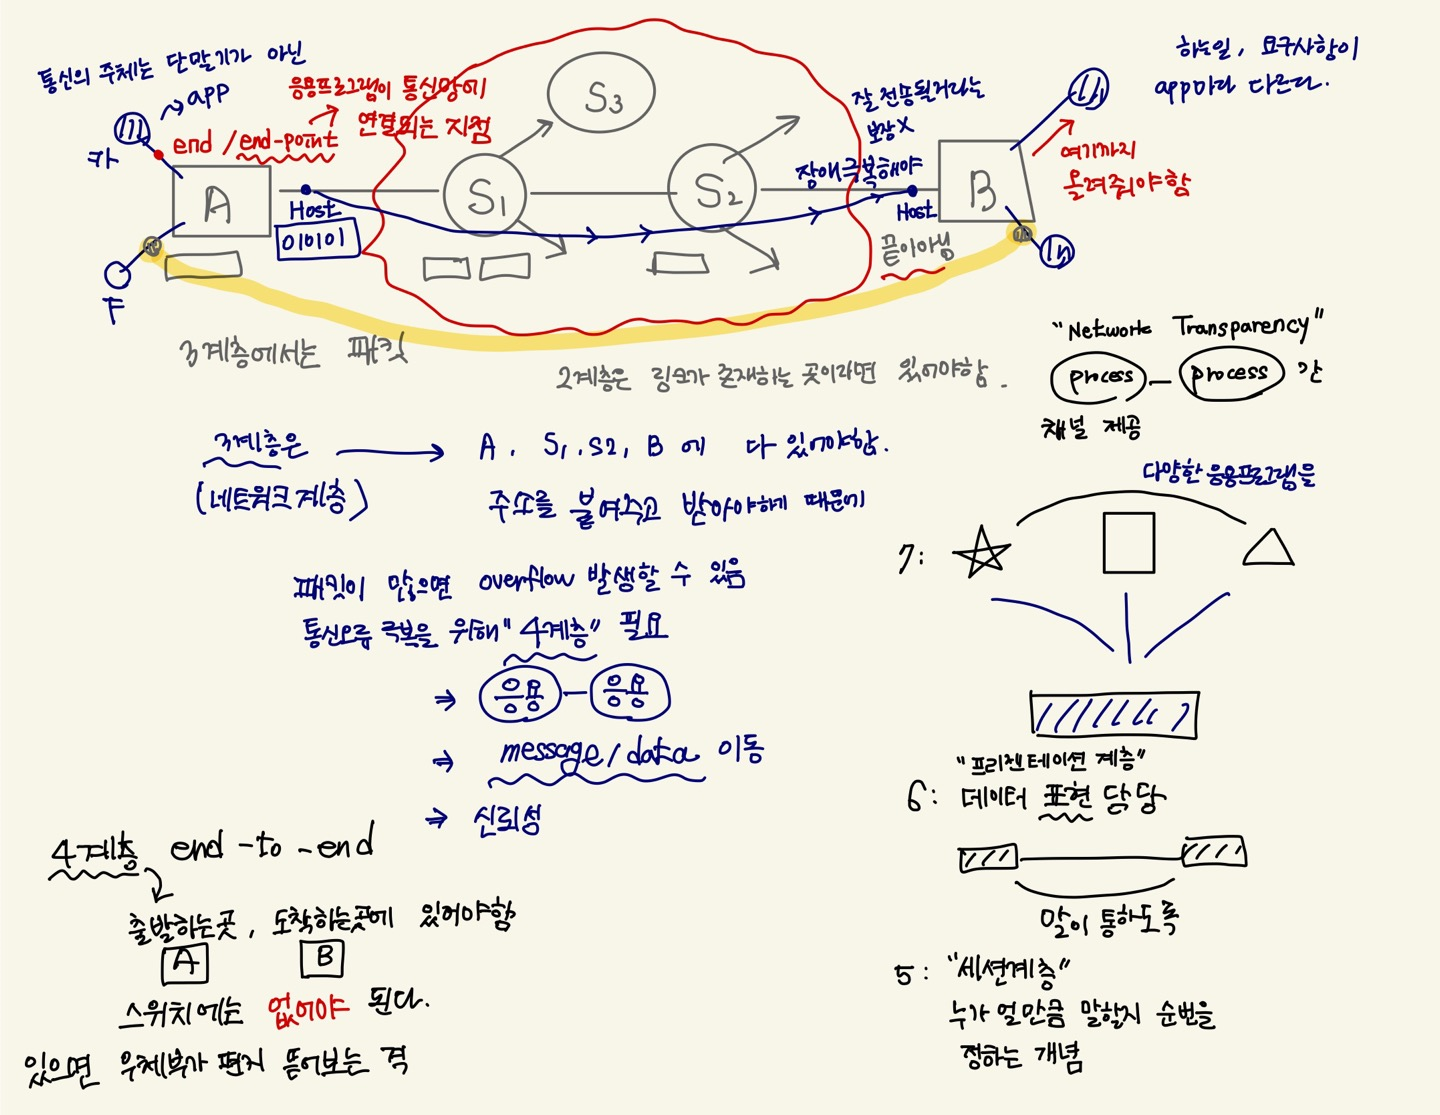 통신의 주체는 단말기가 아닌
app
응용프로그램이 통신망에
연결되는 지점
end / end-point
카
A
Host
010101
F
S1
S2
S3
잘 전송될거라는
보장 X
장애극복해야
Host
B
끝이아님
하는일, 요구사항이
app마다 다르다.
여기까지
올려줘야함
3계층에서는 패킷
2계층은 링크가 존재하는 곳이라면 있어야함.
"Network Transparency"
process - process 간
채널 제공
3계층은 → A, S1, S2, B 에 다 있어야함.
(네트워크 계층) 주소를 붙여주고 받아야하기 때문에
패킷이 많으면 overflow 발생할 수 있음
통신오류 극복을 위해 "4계층" 필요
⇒ 응용 - 응용
⇒ message/data 이동
⇒ 신뢰성
4계층 end-to-end
출발하는곳, 도착하는곳에 있어야함
A B
스위치에는 없어야 된다.
있으면 우체부가 편지 뜯어보는 격
다양한 응용프로그램을
7:
"프리젠테이션 계층"
6: 데이터 표현 담당
말이 통하도록
5: "세션계층"
누가 얼만큼 말할지 순번을
정하는 개념